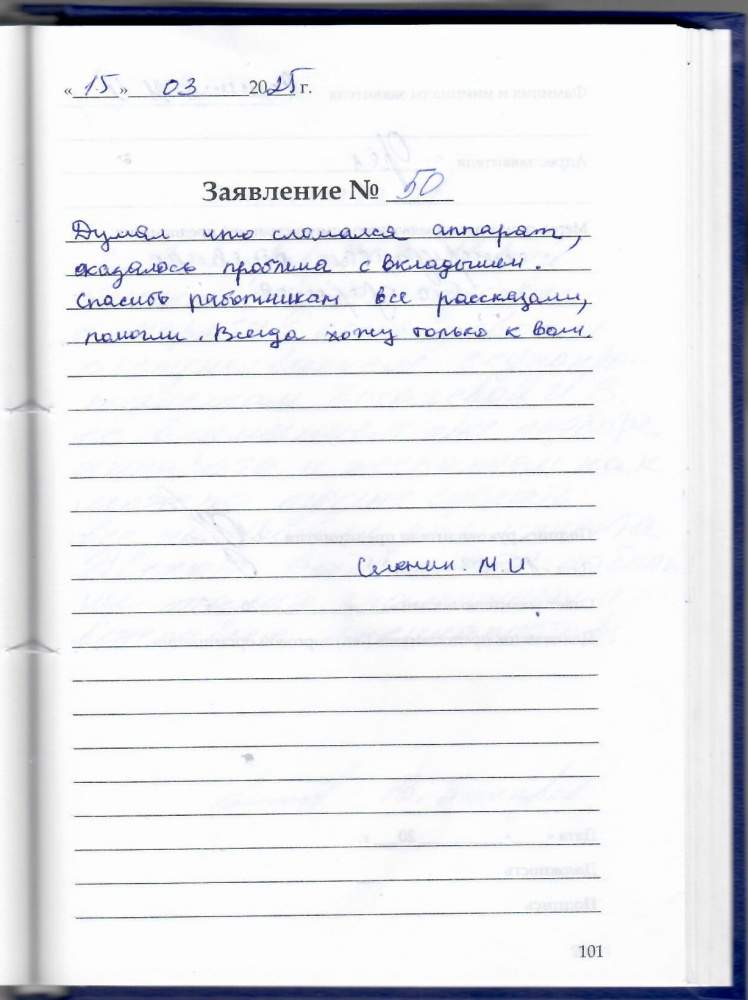 «15» 03 2025 г.
Заявление № 50
Думал что сломался аппарат,
оказалось проблема с вкладышем.
Спасибо работникам все рассказали,
помогли. Всегда хожу только к вам.
М.И
101